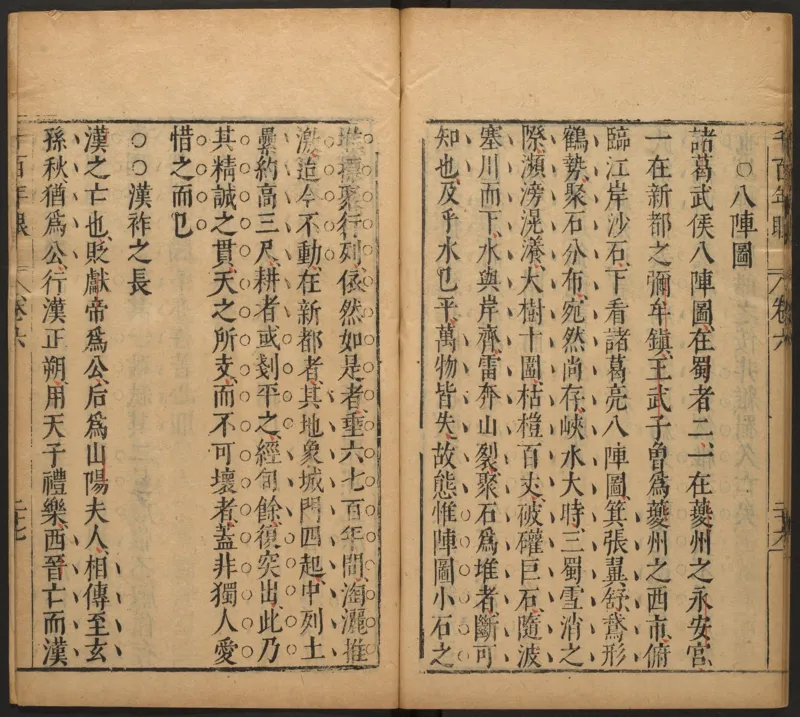 千百年眼 卷六
○八陣圖
諸葛武侯八陣圖在蜀者二一在夔州之永安宮
一在新都之彌牟鎮王武子曾為夔州之西市俯
臨江岸沙石下看諸葛亮八陣圖箕張翼舒鵞形
鶴勢聚石分布宛然尚存峽水大時三蜀雪消之
際澒滂滉瀁大樹十圍枯槎百丈破磓巨石隨波
塞川而下水與岸齊雷奔山裂聚石為堆者斷可
知也及乎水已平萬物皆失故態惟陣圖小石之
堆標聚行列依然如是者垂六七百年間淘灑推
激迨今不動在新都者其地象城門四起中列土
壘約高三尺耕者或剗平之經旬餘復突出此乃
其精誠之貫天之所支而不可壞者蓋非獨人愛
惜之而已
○○漢祚之長
漢之亡也貶獻帝為公后為山陽夫人相傳至玄
孫秋猶為公行漢正朔用天子禮樂西晉亡而漢
千百年眼 卷六 二十七